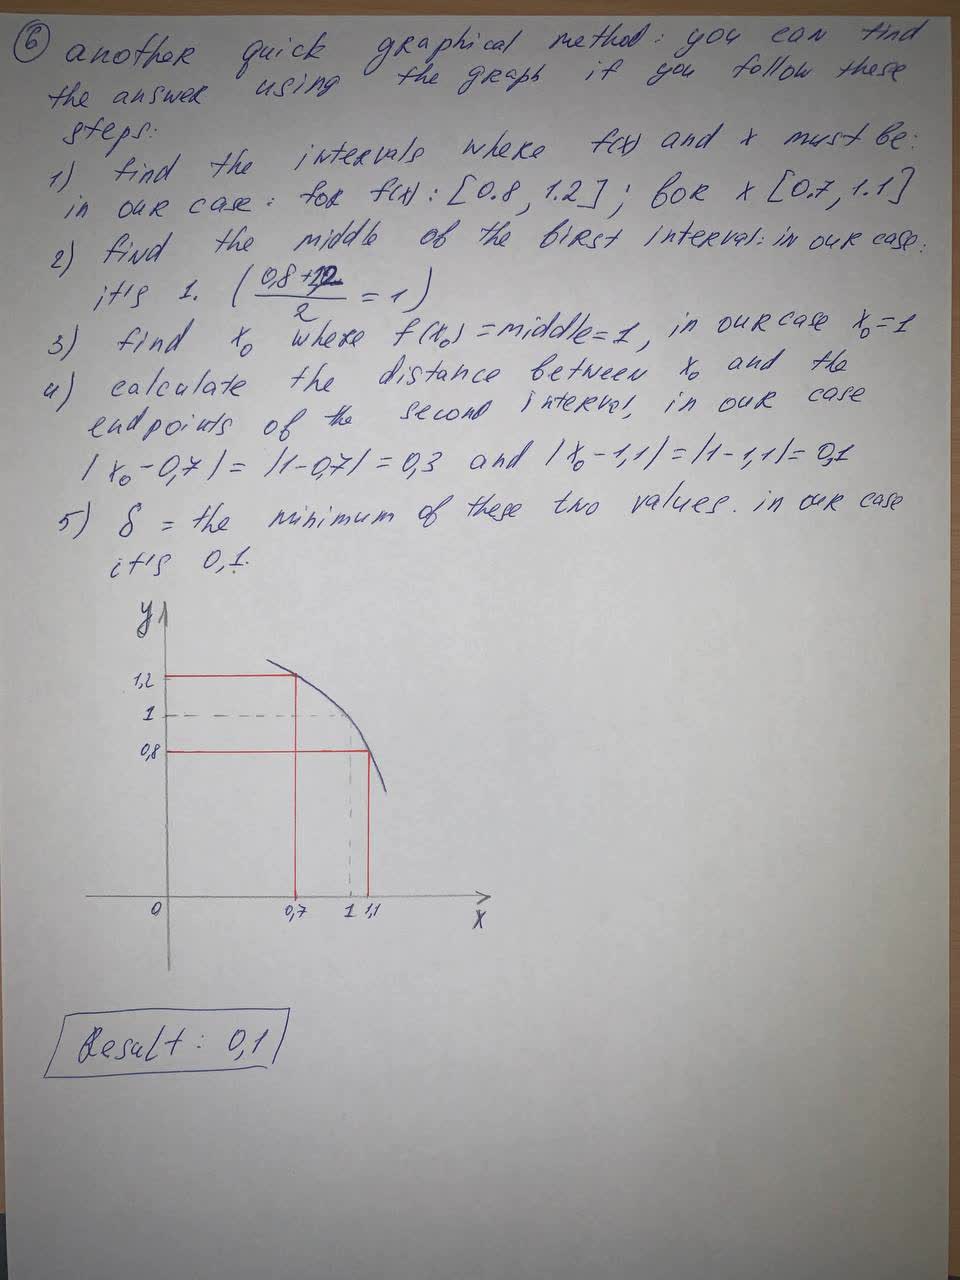 6 another quick graphical method: you can find
the answer using the graph if you follow these
steps:
1) find the intervals where f(x) and x must be:
in our case: for f(x): [0.8, 1.2]; for x [0.7, 1.1]
2) find the middle of the first interval: in our case:
it's 1. (0,8+1,2/2 = 1)
3) find x₀ where f(x₀) = middle = 1, in our case x₀=1
4) calculate the distance between x₀ and the
endpoints of the second interval, in our case
|x₀-0,7| = |1-0,7| = 0,3 and |x₀-1,1| = |1-1,1| = 0,1
5) δ = the minimum of these two values. in our case
it's 0,1.
y
1,2
1
0,8
0 0,7 1 1,1
x
Result: 0,1